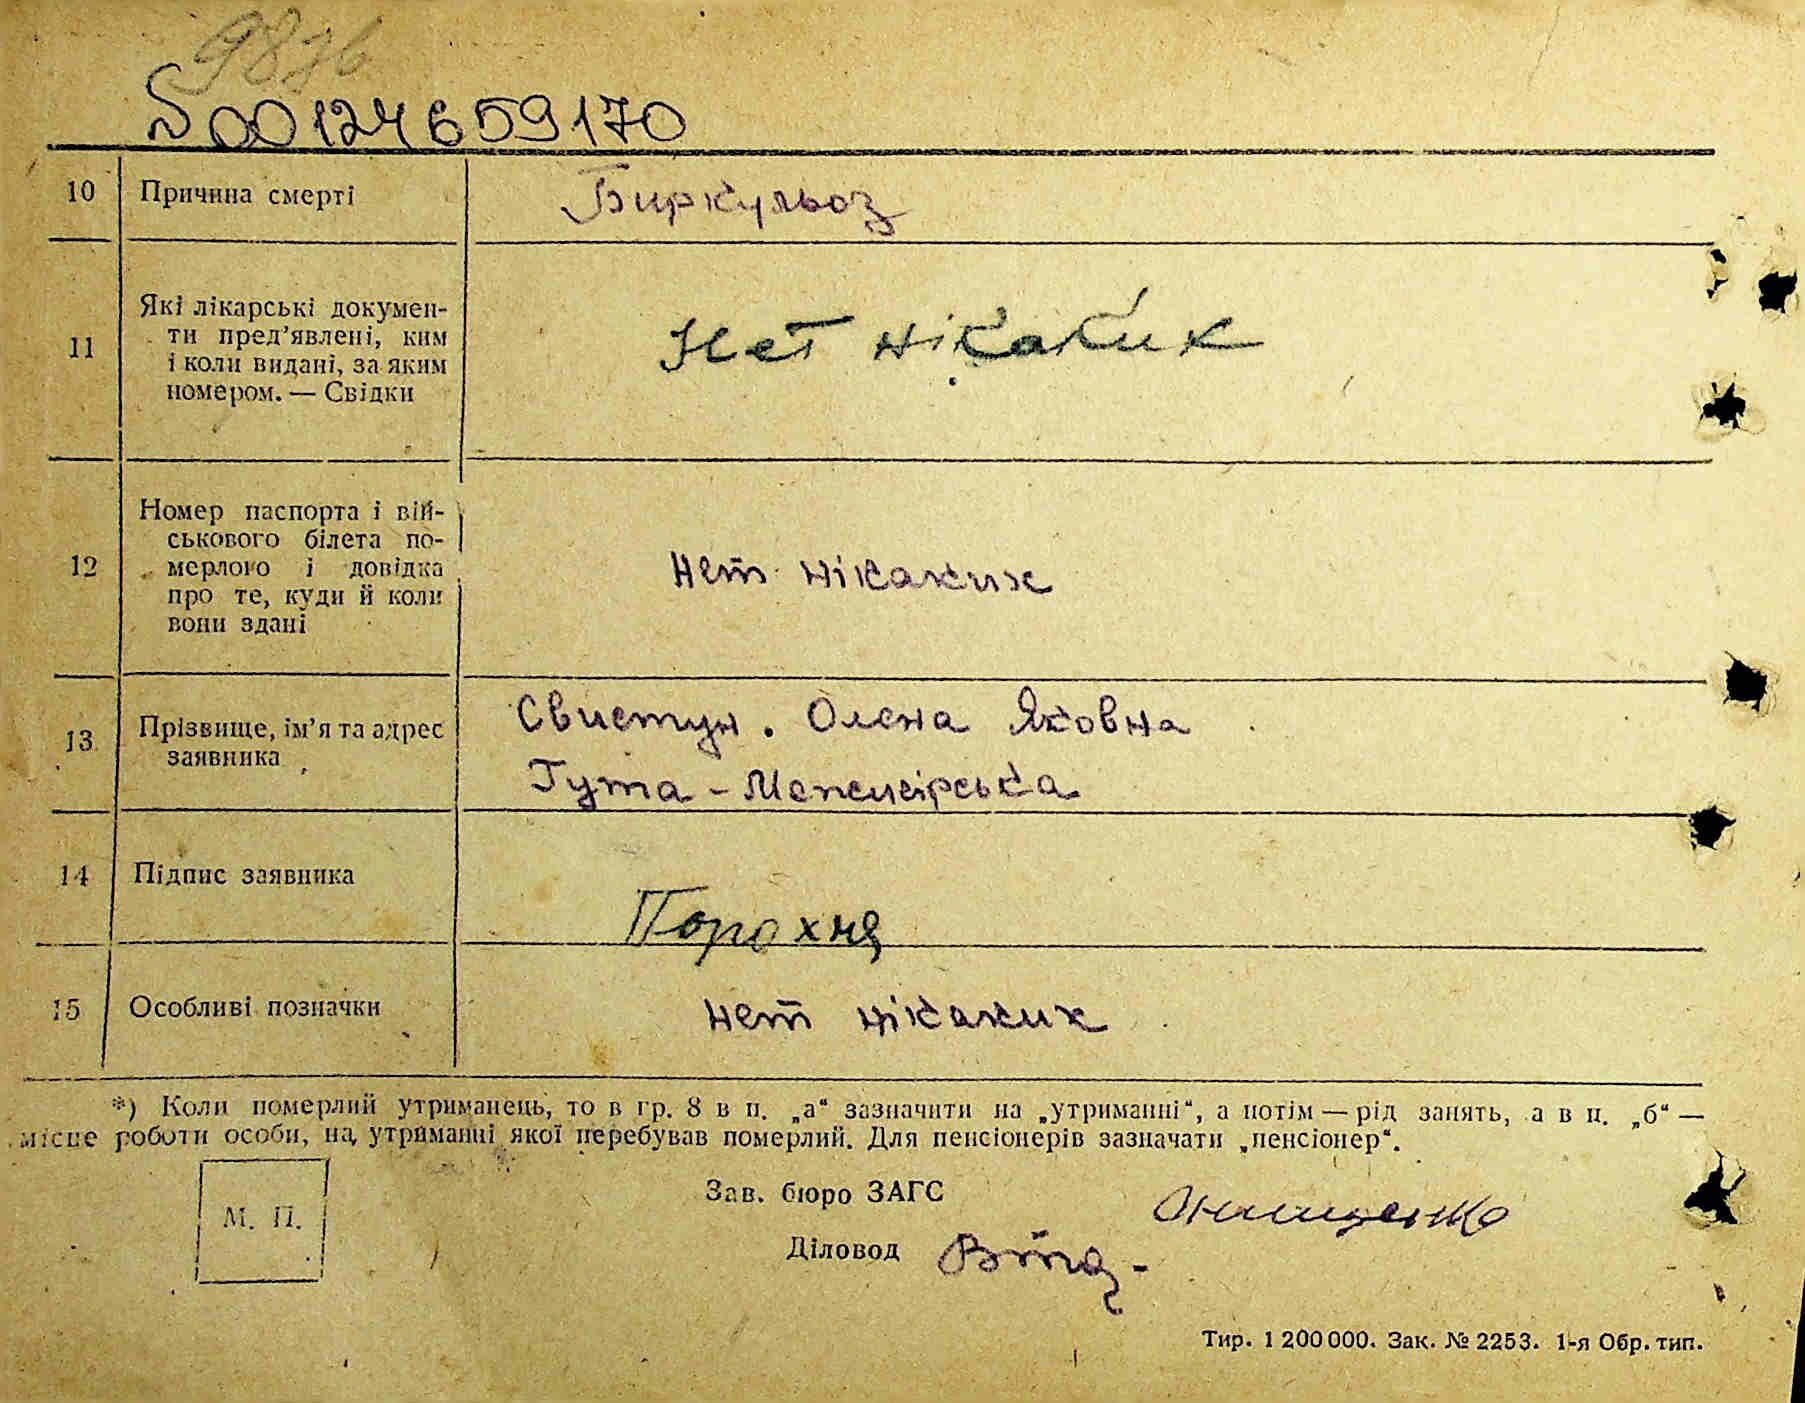 9876
S00124659170
10 Причина смерті Биркульоз
11 Які лікарські докумен-
ти пред’явлені, ким
і коли видані, за яким
номером. — Свідки
Нет нікаких
12 Номер паспорта і вій-
ськового білета по-
мерлого і довідка
про те, куди й коли
вони здані
нет нікаких
13 Прізвище, ім’я та адрес
заявника
Свистун. Олена Яковна
Гута-Межигірська
14 Підпис заявника Порохня
15 Особливі позначки нет нікаких
*) Коли померлий утриманець, то в гр. 8 в п. „а“ зазначити на „утриманні“, а потім — рід занять, а в п. „б“ —
місце роботи особи, на утриманні якої перебував померлий. Для пенсіонерів зазначати „пенсіонер“.
М. П.
Зав. бюро ЗАГС Онищенко
Діловод
Тир. 1 200 000. Зак. № 2253. 1-я Обр. тип.